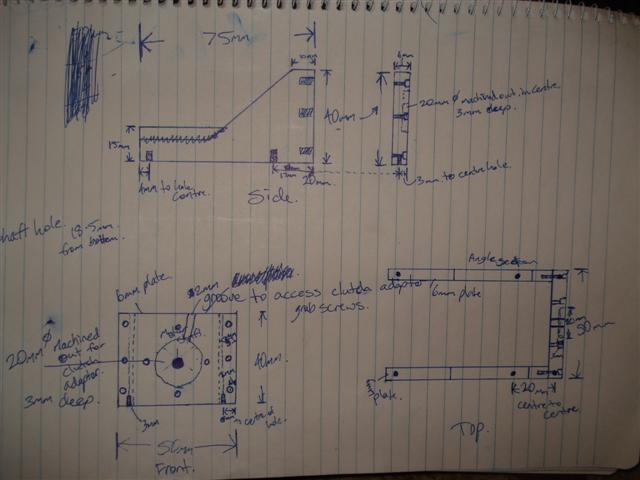 75mm
10mm
6mm
20mm ø machined out in centre
3mm deep.
40mm
15mm
4mm to hole
Centre.
20mm
3mm to centre hole.
Side.
shaft hole. 18.5mm
from bottom.
6mm plate.
2mm
groove to access clutch adaptor
grub screws.
Angle section
6mm plate
20mm ø machined
out for
clutch
adaptor.
3mm deep.
40mm.
50mm
3mm
plate.
20mm
centre to
centre
3mm
Front.
Top.